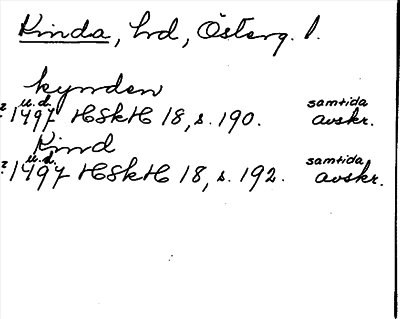 Kinda, hd, Österg. l.
kynden
? u.d. samtida
1497 HSkH 18, s. 190. avskr.
Kind
? u.d. samtida
1497 HSkH 18, s. 192. avskr.